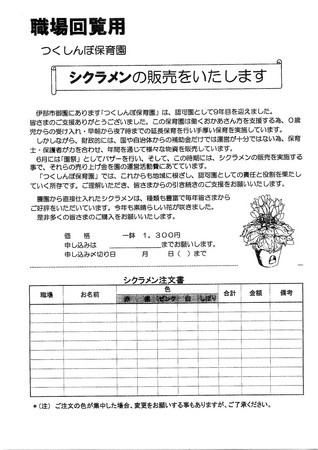 職場回覧用
つくしんぼ保育園
シクラメンの販売をいたします
伊那市御園にあります「つくしんぼ保育園」は、認可園として9年目を迎えました。
皆さまのご支援ありがとうございました。この保育園は働くおかあさん方を支援する為、0歳
児からの受け入れ・早朝から夜7時までの延長保育を行い手厚い保育を実施しています。
しかしながら、財政的には、国や自治体からの補助金だけでは運営が十分ではない為、保育
士・保護者が力を合わせ、年間を通じて様々な物資を販売しています。
6月には「園祭」としてバザーを行い、そして、この時期には、シクラメンの販売を実施する
事で、それらの売り上げ金を園の運営活動費にあてています。
「つくしんぼ保育園」では、これからも地域に根ざし、認可園としての責任と役割を果たし
ていく所存です。ご理解いただき、皆さまからの引き続きのご支援をお願いいたします。
農園から直接仕入れたシクラメンは、種類も豊富で毎年皆さまから
ご好評をいただいています。今年も素晴らしい花が咲きました。
是非多くの皆さまのご購入をお願いいたします。
価 格 一鉢 1,300円
申し込みは までお願いします。
申し込み〆切り日 月 日( )まで
シクラメン注文書
職場 お名前 色 合計 金額 備考
赤 紫 ピンク 白 しぼり
*(注) ご注文の色が集中した場合、変更をお願いする事もありますが、ご了承ください。